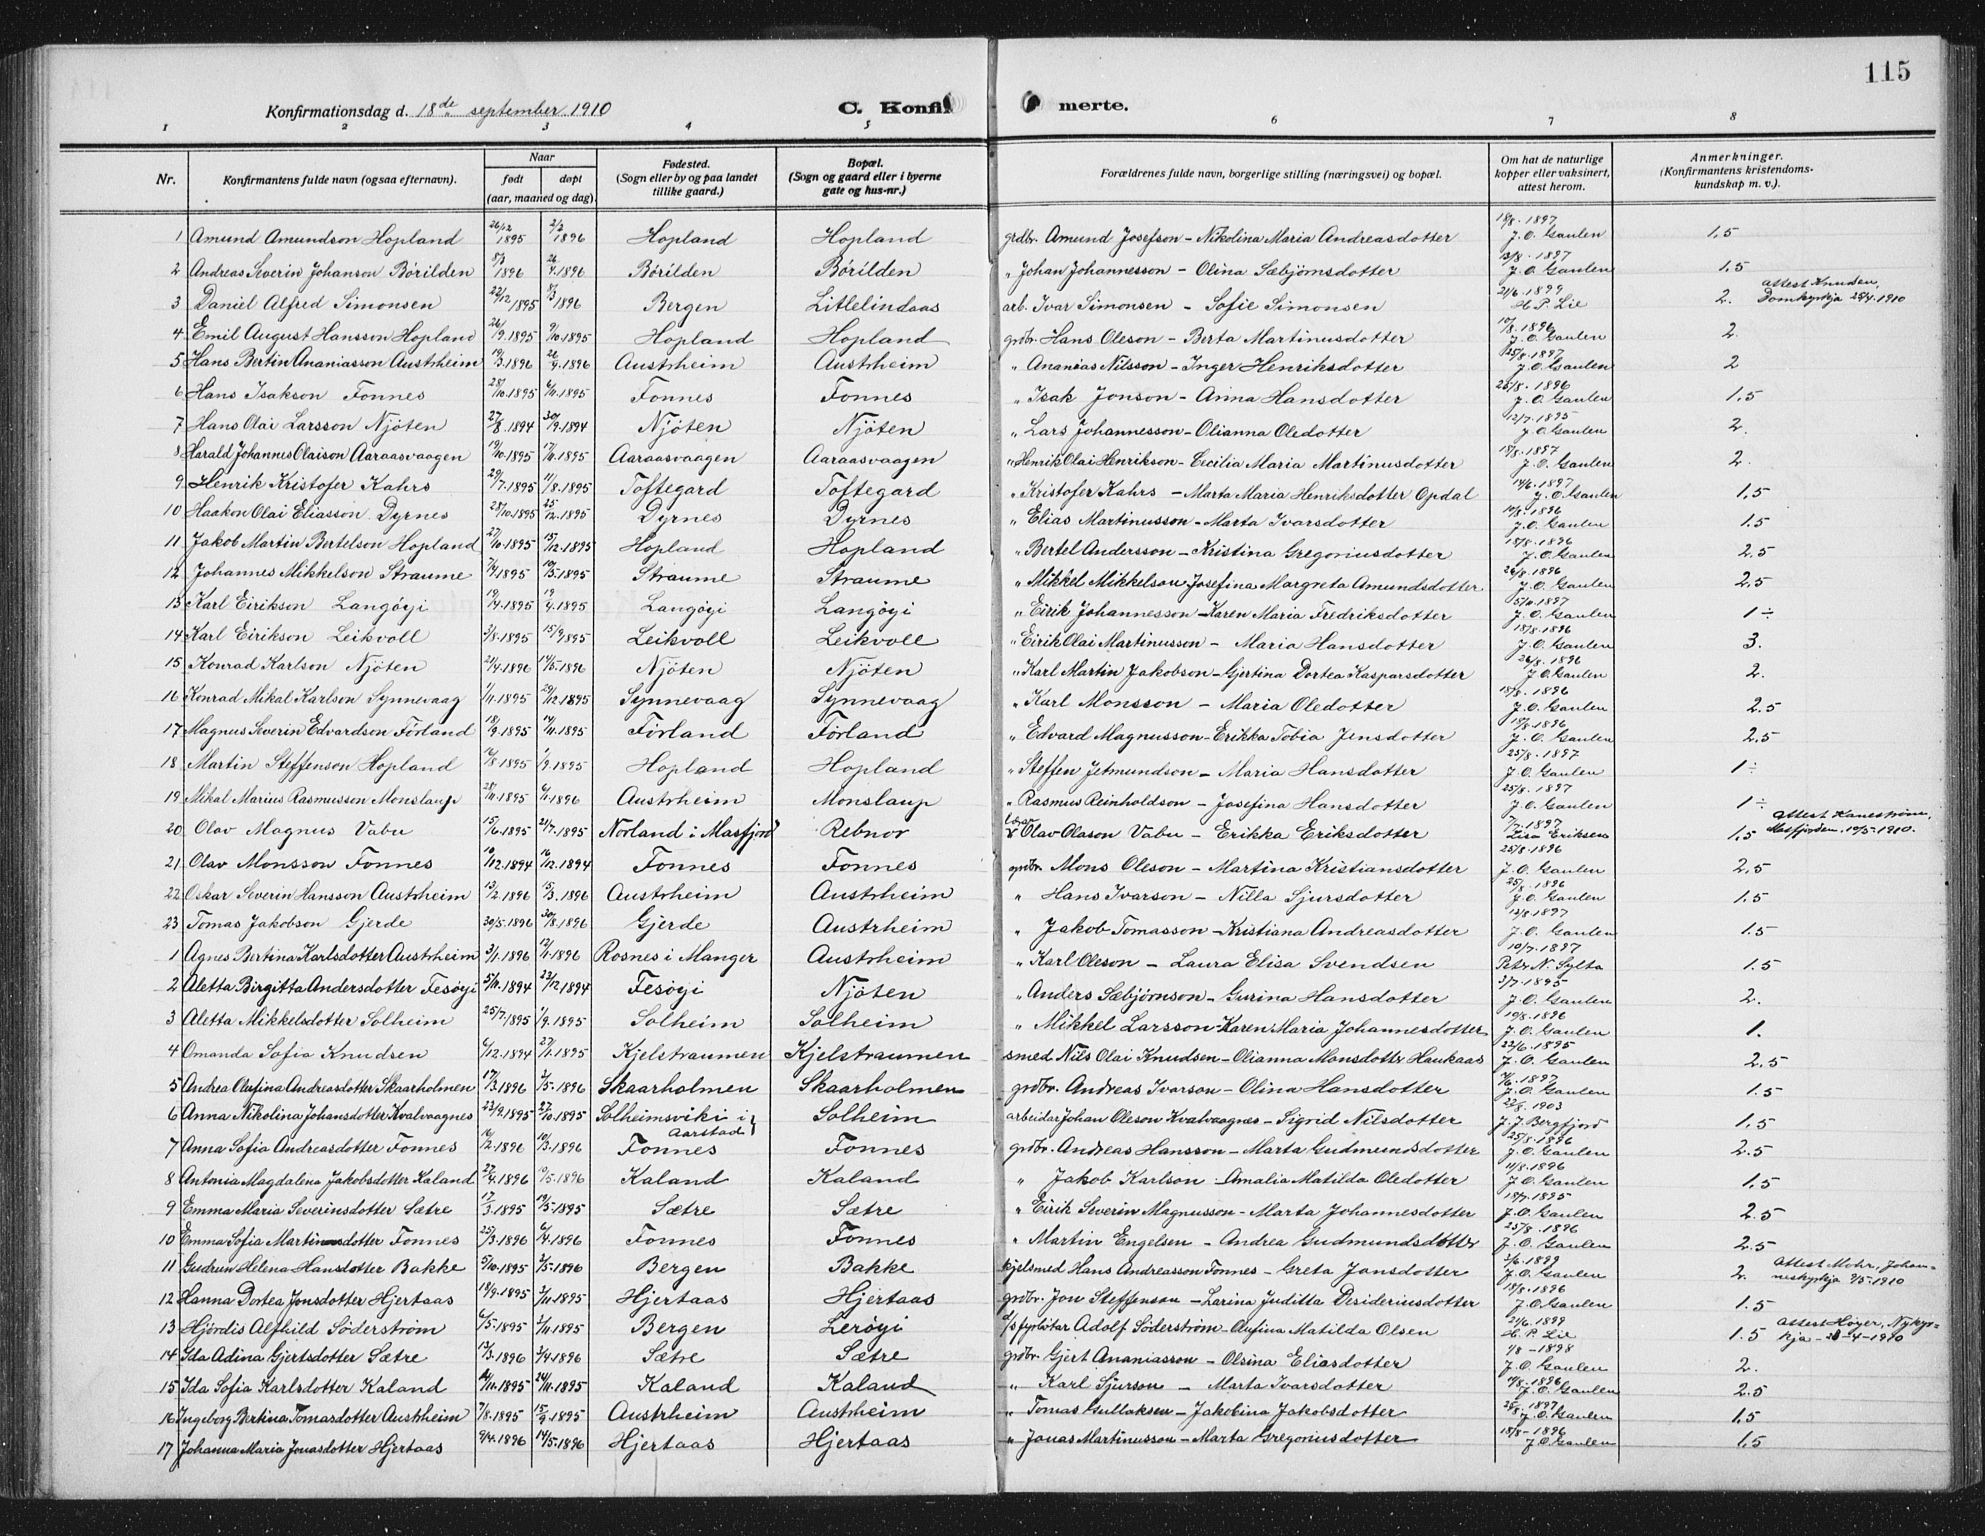 115
Konfirmationsdag d. 18de september 1910 C. Konfirmerte.
1 2 3 4 5 6 7 8
Nr. Konfirmantens fulde navn (ogsaa efternavn). Naar født døpt (aar, maaned og dag). Fødested. (Sogn eller by og paa landet tillike gaard.) Bopæl. (Sogn og gaard eller i byerne gate og hus-nr.) Forældrenes fulde navn, borgerlige stilling (næringsvei) og bopæl. Om hat de naturlige kopper eller vaksinert, attest herom. Anmerkninger. (Konfirmantens kristendoms-kundskap m. v.).
1 Amund Amundson Hopland 26/12 1895 2/2 1896 Hopland Hopland grdbr. Amund Josefson - Nikolina Maria Andreasdotter 18/8. 1897 J. O. Gaulen 1,5
2 Andreas Severin Johanson Börilden 1896 26/4 1896 Börilden Börilden " Johan Johannesson - Olina Sæbjörnsdotter 13/8. 1897 J. O. Gaulen 1.5
3 Daniel Alfred Simonsen 22/12 1895 8/3 1896 Bergen Litlelindaas arb. Ivar Simonsen - Sofie Simonsen 21/6. 1899 H. P. Lie 2. attest Knuden, Domkyrkja 25/4. 1910
4 Emil August Hansson Hopland 26/9. 1895 9/10. 1895 Hopland Hopland grdbr. Hans Oleson - Berta Martinusdotter 10/8. 1896 J. O. Gaulen 2.
5 Hans Bertin Ananiasson Austrheim 19/3. 1896 26/4. 1896 Austrheim Austrheim " Ananias Nilsson - Inger Henriksdotter 25/8. 1897 J. O. Gaulen 2
6 Hans Isakson Fonnes 28/10. 1895 6/11. 1895 Fonnes Fonnes " Isak Jonson - Anna Hansdotter 25/8. 1896 J. O. Gaulen 1.5
7 Hans Olai Larsson Njöten 27/8. 1894 30/9. 1894 Njöten Njöten " Lars Johannesson - Olianna Oledotter 12/7. 1895 J. O. Gaulen 2.
8 Harald Johannes Olaison Aaraasvaagen 19/10. 1895 17/11. 1895 Aaraasvaagen Aaraasvaagen " Henrik Olai Henrikson - Cecilia Maria Martinusdotter 18/8. 1897 J. O. Gaulen 2.
9 Henrik Kristofer Kahrs 29/7. 1895 11/8. 1895 Toftegard Toftegard " Kristofer Kahrs - Marta Maria Henriksdotter Opdal 14/6. 1897 J. O. Gaulen 1,5
10 Haakon Olai Eliasson Dyrnes 28/10. 1895 25/12. 1895 Dyrnes Dyrnes " Elias Martinusson - Marta Ivarsdotter 14/8. 1896 J. O. Gaulen 1.5
11 Jakob Martin Bertelson Hopland 27/10. 1895 15/12. 1895 Hopland Hopland " Bertel Andersson - Kristina Gregoriusdotter 18/8. 1896 J. O. Gaulen 2.5
12 Johannes Mikkelson Straume 7/4 1895 19/5. 1895 Straume Straume " Mikkel Mikkelson Josefina Margreta Amundsdotter 26/8. 1896 J. O. Gaulen 2.5
13 Karl Eirikson Langöyi 19/4. 1895 1895 Langöyi Langöyi " Eirik Johannesson - Karen Maria Fredriksdotter 5/10. 1897 J. O. Gaulen 1 ÷
14 Karl Eirikson Leikvoll 3/8. 1895 15/9 1895 Leikvoll Leikvoll " Eirik Olai Martinusson - Maria Hansdotter 18/8. 1896 J. O. Gaulen 3.
15 Konrad Karlson Njöten 21/4. 1896 14/5. 1896 Njöten Njöten " Karl Martin Jakobson - Gjertina Dortea Kasparsdotter 26/8. 1896 J. O. Gaulen 2.
16 Konrad Mikal Karlson Synnevaag 1/11. 1895 29/12. 1895 Synnevaag Synnevaag " Karl Monsson - Maria Oledotter 18/8. 1896 J. O. Gaulen 2.5
17 Magnus Severin Edvardson Förland 18/9. 1895 14/11. 1895 Förland Förland " Edvard Magnusson - Erikka Tobia Jensdotter 18/8. 1896 J. O. Gaulen 2.5
18 Martin Steffenson Hopland 1895 1/9. 1895 Hopland Hopland " Steffen Jetmundson - Maria Hansdotter 25/8. 1897 J. O. Gaulen 1 ÷
19 Mikal Marius Rasmusson Monslaup 28/11. 1895 6/1. 1896 Austrheim Monslaup " Rasmus Reinholdson - Josefina Hansdotter 25/8. 1897 J. O. Gaulen 1 ÷
20 Olav Magnus Vabu 15/6. 1895 21/7. 1895 Norland i Masfjord Rebnor Olav Olason Vabu - Erikka Eriksdotter 7/7. 1897 Lisa Eriksen 1,5 attest Kaneström, Masfjorden, 10/5. 1910.
21 Olav Monsson Fonnes 10/12. 1894 16/12. 1894 Fonnes Fonnes grdbr. Mons Oleson - Martina Kristiansdotter 25/8. 1896 J. O. Gaulen 2,5
22 Oskar Severin Hansson Austrheim 13/2. 1896 15/3. 1896 Austrheim Austrheim " Hans Ivarson - Nilla Sjursdotter 25/8. 1896 J. O. Gaulen 1.5
23 Tomas Jakobson Gjerde 30/5. 1896 30/8. 1896 Gjerde Austrheim " Jakob Tomasson - Kristiana Andreasdotter 13/8. 1897 J. O. Gaulen 1.5
1 Agnes Bertina Karlsdotter Austrheim 3/1. 1896 12/1. 1896 Rosnes i Manger Austrheim " Karl Oleson - Laura Elisa Svendsen 10/7. 1897 Peter N. Sylta 1.5
2 Aletta Birgitta Andersdotter Fesöyi 5/11. 1894 23/12 1894 Fesöyi Njöten " Anders Sæbjörnson - Gurina Hansdotter 3/7. 1895 J. O. Gaulen 2.
3 Aletta Mikkelsdotter Solheim 25/7. 1895 1/9. 1895 Solheim Solheim " Mikkel Larsson - Karen Maria Johannesdotter 19/8. 1896 J. O. Gaulen 1.
4 Amanda Sofia Knudsen 6/12. 1894 27/1. 1895 Kjelstraumen Kjelstraumen smed Nils Olai Knudsen - Olianna Monsdotter Haukaas 22/6. 1895 J. O. Gaulen 2.5
5 Andrea Olufina Andreasdotter Skaarholmen 17/3. 1896 3/5. 1896 Skaarholmen Skaarholmen grdbr. Andreas Ivarson - Olina Hansdotter 1897 J. O. Gaulen 1.5
6 Anna Nikolina Johansdotter Kvalvaagnes 23/9. 1895 27/10. 1895 Solheimsviki i Aarstad Solheim arbeidar Johan Oleson Kvalvaagnes - Sigrid Nilsdotter 22/8. 1903 J. J. Bergfjord 1.5
7 Anna Sofia Andreasdotter Fonnes 16/2. 1896 10/3. 1896 Fonnes Fonnes grdbr. Andreas Hansson - Marta Gudmundsdotter 25/8. 1896 J. O. Gaulen 2.5
8 Antonia Magdalena Jakobsdotter Kaland 27/4. 1896 10/5. 1896 Kaland Kaland " Jakob Karlson - Amalia Matilda Oledotter 11/8. 1896 J. O. Gaulen 1.5
9 Emma Maria Severinsdotter Sætre 17/3. 1895 19/5. 1895 Sætre Sætre " Eirik Severin Magnusson - Marta Johannesdotter 18/7. 1895 J. O. Gaulen 2.5
10 Emma Sofia Martinusdotter Fonnes 25/3. 1896 6/4. 1896 Fonnes Fonnes " Martin Engelsen - Andrea Gudmundsdotter 25/8. 1896 J. O. Gaulen 2.5
11 Gudrun Helena Hansdotter Bakke 5/10. 1895 3/5. 1896 Bergen Bakke kjelsmed Hans Andreasson Fonnes - Greta Jonsdotter 3/6. 1899 J. O. Gaulen 2. Attest Mohr, Johanneskyrkja 3/5. 1910
12 Hanna Dortea Jonsdotter Hjertaas 18/9. 1895 3/11. 1895 Hjertaas Hjertaas grdbr. Jon Steffenson - Larina Juditta Desideriusdotter 18/8. 1896 J. O. Gaulen 1.5
13 Hjördis Alfhild Söderström 6/5. 1895 3/11. 1895 Bergen Leröyi fyrbötar Adolf Söderström - Olufina Matilda Olsen 21/6. 1899 H. P. Lie 1.5 attest Höyer, Nykyrkja - 4-1910
14 Ida Adina Gjertsdotter Sætre 13/3. 1896 3/4. 1896 Sætre Sætre grdbr. Gjert Ananiasson - Olsina Eliasdotter 1/8 - 1898 J. O. Gaulen 2.
15 Ida Sofia Karlsdotter Kaland 1895 24/11. 1895 Kaland Kaland " Karl Sjurson - Marta Ivarsdotter 19/8. 1896 J. O. Gaulen 2.5
16 Ingeborg Bertina Tomasdotter Austrheim 7/8. 1895 15/9. 1895 Austrheim Austrheim " Tomas Gullaksen - Jakobina Jakobsdotter 25/8. 1897 J. O. Gaulen 1.5
17 Johanna Maria Jonasdotter Hjertaas 9/4. 1896 14/5. 1896 Hjertaas Hjertaas " Jonas Martinusson - Marta Gregoriusdotter 18/8 - 1896 J. O. Gaulen 1.5